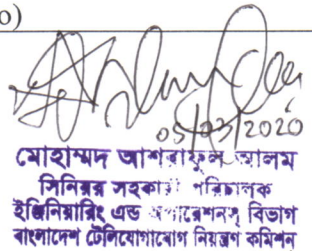 o)
05/03/2020
মোহাম্মদ আশরাফুল আলম
সিনিয়র সহকারী পরিচালক
ইঞ্জিনিয়ারিং এন্ড অপারেশনস্ বিভাগ
বাংলাদেশ টেলিযোগাযোগ নিয়ন্ত্রণ কমিশন